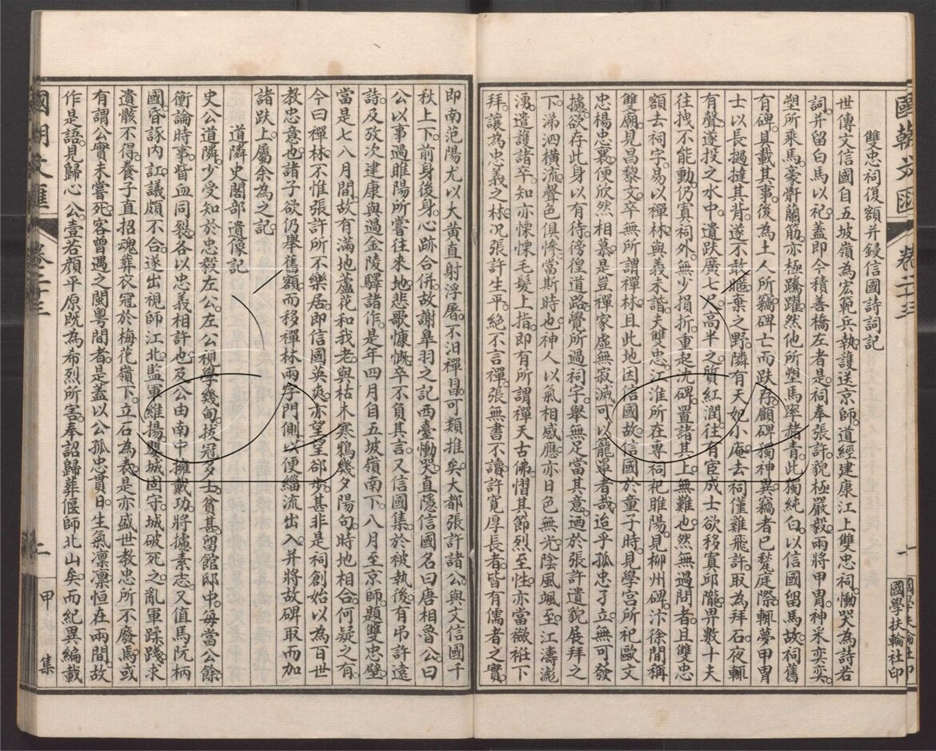 國朝文匯
卷二十三
一
國學扶輪社印
雙忠祠復額并録信國詩詞記
世傳文信國自五坡嶺為宏範兵執護送京師。道經建康江上雙忠祠。慟哭為詩若
詞。并留白馬以祀。蓋即今積善橋左者是。祠奉張許貌極嚴毅。兩將甲胄。神米奕奕。
塑所乘馬。豪骭蘭筋。亦極蹻躍。然他所塑馬。率諸青。此獨純白。以信國留馬故。祠舊
有碑。具載其事。後為土人所竊。碑亡而趺存。顧碑獨神異。竊者已甃庭際。輒夢甲冑
士以長撾撻其背。遂不敢匿。棄之野。隣有天妃小庵。去祠僅雞飛許。取為拜石。夜輒
有聲。遂投之水中。遺趺廣七尺。高半之。質紅潤。往有宦成士欲移寘邱隴。畀數十夫
往拽不能動。仍寘祠外。無少損折。重起沈碑。置諸其上。無難也。然無過問者。且雙忠
額去祠字。易以禪林。與義未諧。夫雙忠。江淮所在專祠祀睢陽。見柳州碑。汴徐間稱
雙廟。見昌黎文。卒無所謂禪林。且此地因信國故。信國於童子時。見學宮所祀歐文
忠楊忠襄。便欣然相慕。是豈禪家虛無寂滅。可以籠罩者哉。迨乎孤忠了立。無可發
攄。欲存此身以有待。徬徨道路。覺所過祠宇。舉無足當其意。迺於張許遺貌。展拜之
下。涕泗橫流。聲色俱慘。當斯時也。神人以氣相感應。亦日色無光。陰風颯至。江濤澎
湧。遣護諸卒。知亦慄慄毛髮上指。即有所謂禪天古佛。慴其節烈至性。亦當斂袵下
拜。讓為忠義之林。况張許生平。絕不言禪。張無書不讀。許寬厚長者。皆有儒者之實。
國朝文匯
卷二十三
二
甲集
即南范陽尤以大黃直射浮屠。不汨禪畾。可類推矣。大都張許諸公。與文信國千
秋上下。前身後身。心跡合併。故謝皋羽之記西臺慟哭。直隱信國名曰唐相魯公曰
公以事過睢陽所嘗往來地。悲歌慷慨。卒不負其言。又信國集於被執後。有弔許遠
詩。及攷次建康與過金陵驛諸作。是年四月自五坡嶺南下。八月至京師。題雙忠壁
當是七八月間。故有滿地蘆花和我老。與枯木寒鴉幾夕陽句。時地相合。何疑之有
今日禪林不惟張許所不樂居。即信國英爽。亦望望卻步。甚非是祠創始以為百世
教忠意也。諸子欲仍舉舊額。而移禪林兩字門側。以便緇流出入。并將故碑取而加
諸趺上。屬余為之記
道隣史閣部遺像記
史公道隣。少受知於忠毅左公。左公視學幾甸。拔冠多士。貧甚。留館邸中。每當公餘
衡論時事。皆血同裂。各以忠義相許也。及公由南中擁戴功。將攄素志。又值馬阮柄
國昏諑。內訌議頗不合。遂出視師江北。監軍維揚。嬰城固守。城破死之。亂軍蹂踐。求
遺骸不得。養子直招魂葬衣冠於梅花嶺下。立石為表。是亦盛世教忠所不廢焉。或
有謂公實未嘗死。客曾遇之閩粵間者。是蓋以公孤忠貫日。生氣凛凛恒在兩間。故
作是語。見歸心公壹若顏平原既為布烈所害。奉詔歸葬偃師北山矣。而紀異編載